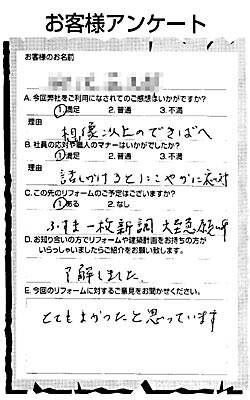 お客様アンケート
お客様のお名前
A. 今回弊社をご利用になされてのご感想はいかがですか?
1.満足 2. 普通 3. 不満
理由
想像以上のできばへ
B. 社員の応対や職人のマナーはいかがでしたか?
1.満足 2. 普通 3. 不満
理由
話しかけるとにこやかに応対
C. この先のリフォームのご予定はございますか?
1.ある 2. なし
ふすま一枚新調 大至急願
D. お知り合いの方でリフォームや建築計画をお持ちの方が
いらっしゃいましたらご紹介をお願い致します。
了解しました。
E. 今回のリフォームに対するご意見をお聞かせください。
とてもよかったと思っています